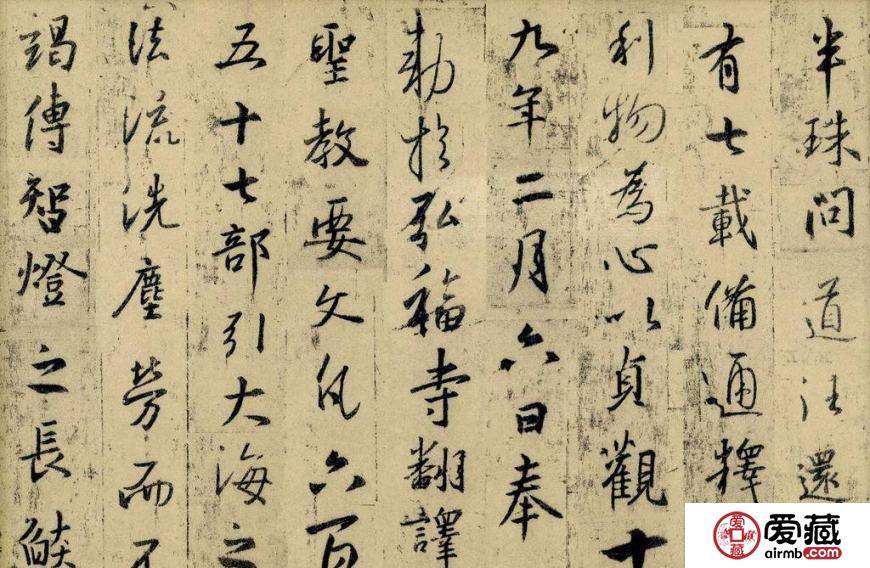 半珠問道往還
有七載備通釋
利物為心以貞觀十
九年二月六日奉
勅於弘福寺翻譯
聖教要文凡六百
五十七部引大海之
法流洗塵勞而不
竭傳智燈之長焰
爱藏
爱藏
airmb.com